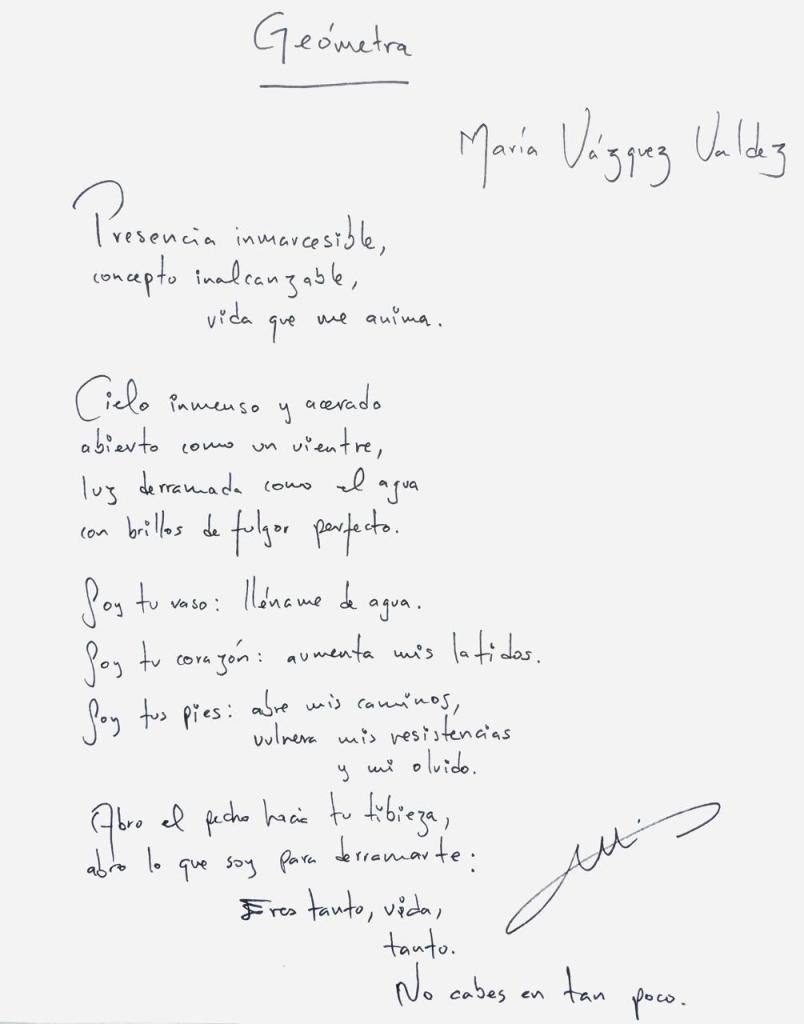 Geómetra
María Vázquez Valdez
Presencia inmarcesible,
concepto inalcanzable,
vida que me anima.
Cielo inmenso y acerado
abierto como un vientre,
luz derramada como el agua
con brillos de fulgor perfecto.
Soy tu vaso: lléname de agua.
Soy tu corazón: aumenta mis latidos.
Soy tus pies: abre mis caminos,
vulnera mis resistencias
y mi olvido.
Abro el pecho hacia tu tibieza,
abro lo que soy para derramarte:
Eres tanto, vida,
tanto.
No cabes en tan poco.